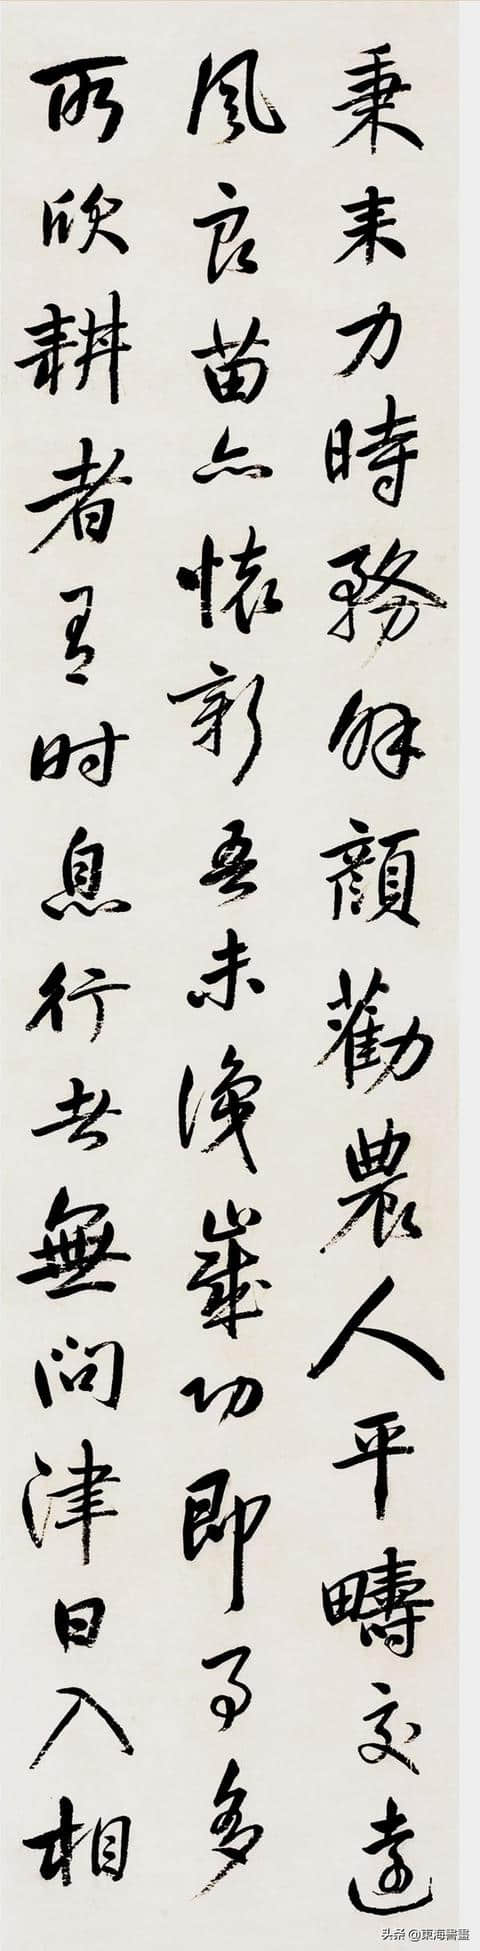 秉耒力時務解顏勸農人平疇交遠
風良苗亦懷新吾未歲功即事多
所欣耕者有时息行者無問津日入相
头条 @東海書畫